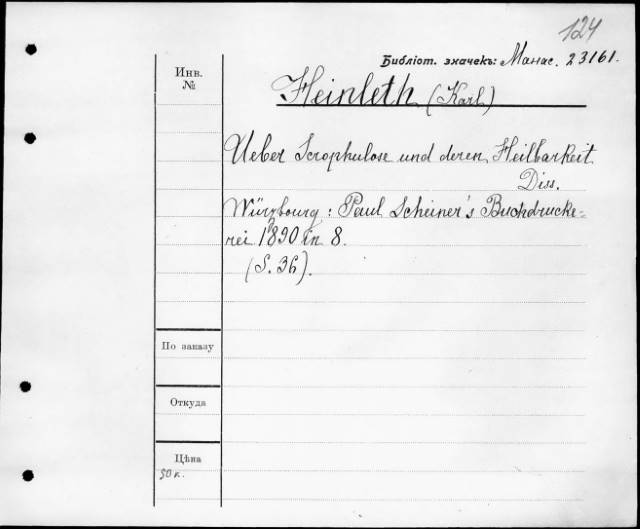 124
Библіот. значекъ: Манас. 23161.
Инв.
№
Heinleth (Karl)
Ueber Scrophulose und deren Heilbarkeit
Diss.
Würzbourg: Paul Scheiner's Buchdrucke-
rei 1890 in 8.
(S. 36).
По заказу
Откуда
Цѣна
50 к.